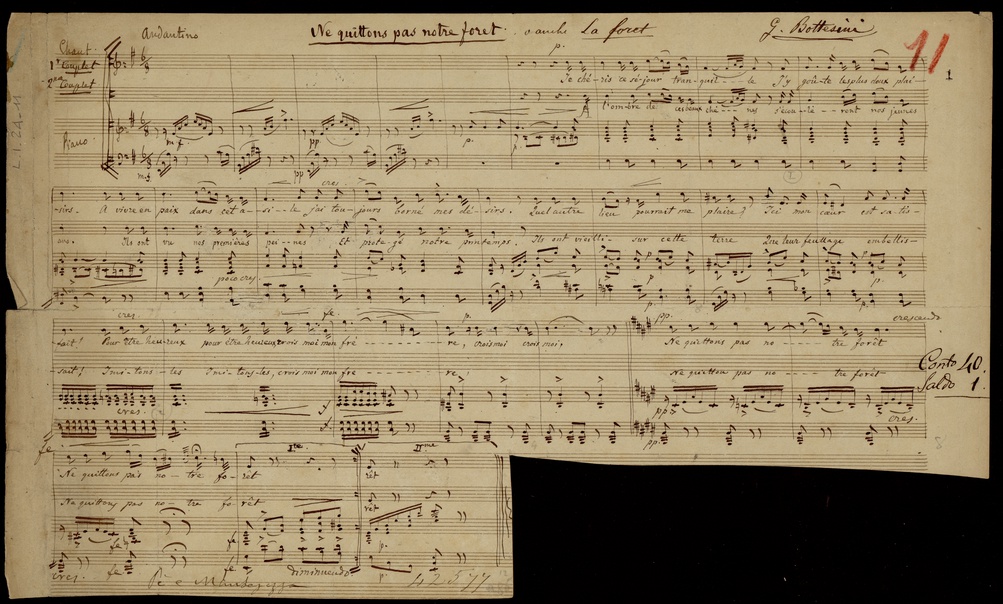 Andantino
Ne quittons pas notre foret. o anche La foret
G. Bottesini
11
1
Chant.
1r Couplet
2me Couplet
Piano
L.II.24-11
p.
Je ché-ris ce sé-jour tran-quil---le J'y goû-te les plus doux plai-
l'ombre de ces beaux chê---nes s'écou-lè--rent nos jeunes
m.f. pp p. p.
m.f. pp
cres.
-sirs. A vivre en paix dans cet a-si-le j'ai tou-jours borné mes dé-sirs. Quel autre lieu pourrait me plaire? Ici mon cœur est satis-
ans. Ils ont vu nos premières pei--nes Et proté-gé notre printemps. Ils ont vieilli- sur cette terre Que leur feuillage embellis-
poco cres. p p
p. p.
cres. fe p. pp. crescendo
-fait! Pour être heu-reux pour être heureux crois moi mon frè---------re, crois moi crois moi, Ne quittons pas no----tre forêt
sait! Imi-tons-les Imi-tons-les, crois moi mon fre-------re! Ne quittons pas no----tre forêt
Conto 40.
Saldo 1.
cres. f pp
f pp. cres.
fe
Ite IIme
Ne quittons pas no-tre fo-rêt rêt
Ne quittons pas no-tre fo-rêt rêt
fe fe p.
cres. fe fe diminuendo. p
42577